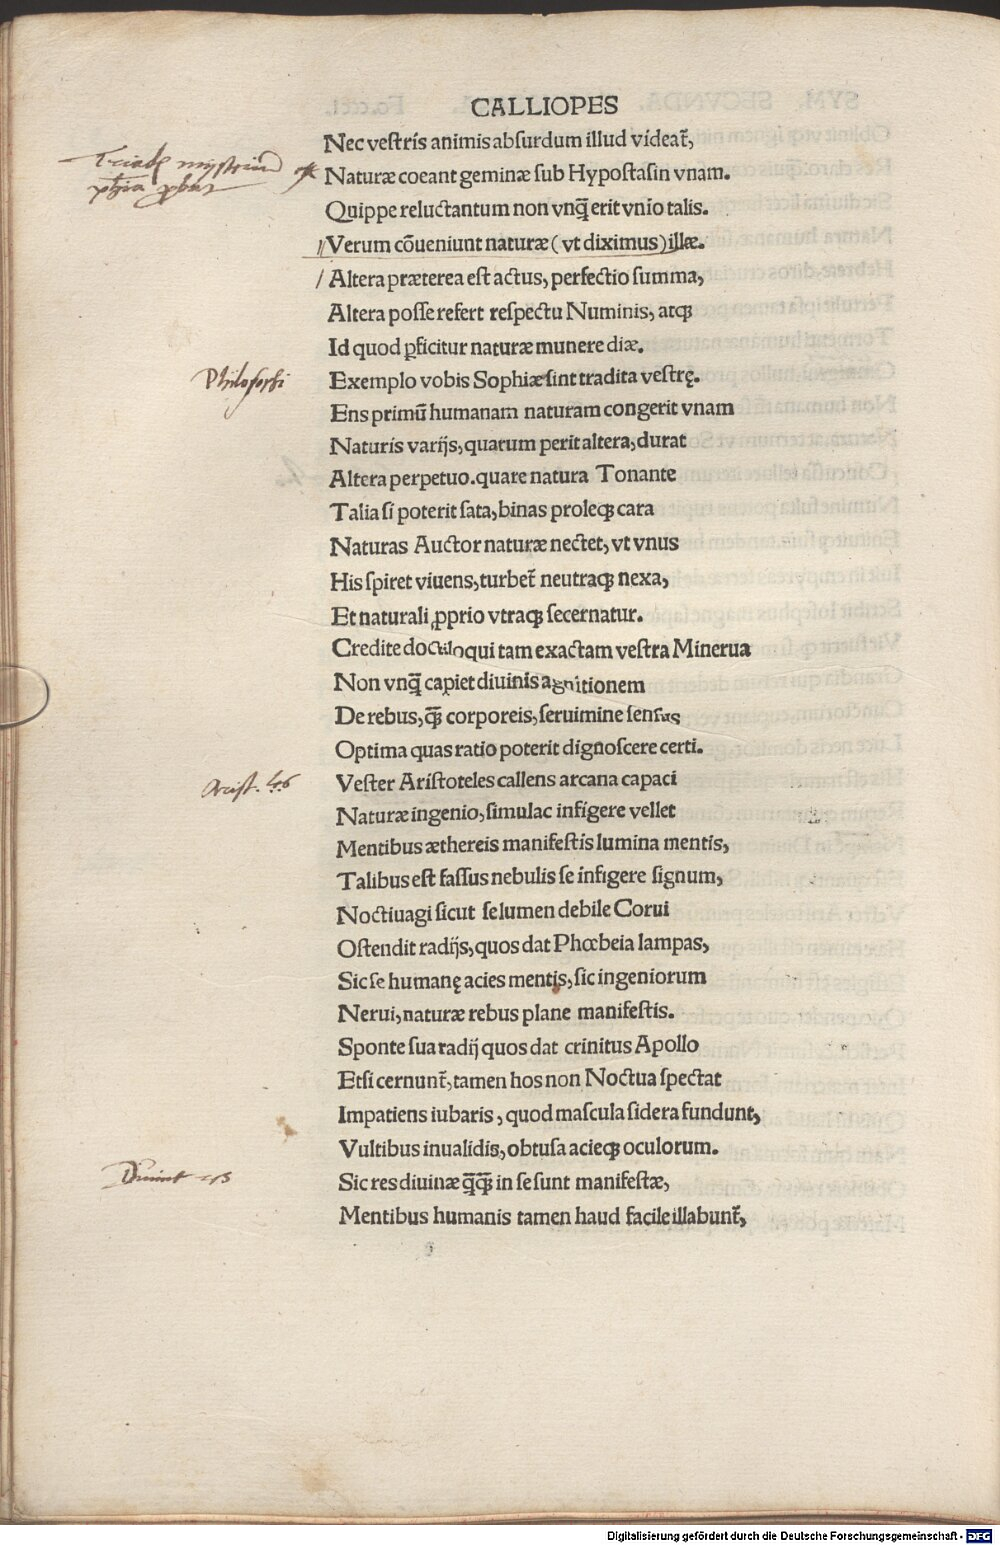 CALLIOPES
Nec vestris animis absurdum illud videat̃,
Naturæ coeant geminæ sub Hypostasin vnam.
Quippe reluctantum non vnq̃ erit vnio talis.
Verum cõueniunt naturæ (vt diximus) illæ.
Altera præterea est actus, perfectio summa,
Altera posse refert respectu Numinis, atqꝫ
Id quod ꝑficitur naturæ munere diæ.
Philosophi
Exemplo vobis Sophiæ sint tradita vestrę.
Ens primũ humanam naturam congerit vnam
Naturis varijs, quarum perit altera, durat
Altera perpetuo. quare natura Tonante
Talia si poterit sata, binas proleqꝫ cara
Naturas Auctor naturæ nectet, vt vnus
His spiret viuens, turbet̃ neutraqꝫ nexa,
Et naturali ꝓprio vtraqꝫ secernatur.
Credite doctiloqui tam exactam vestra Minerua
Non vnq̃ capiet diuinis agnitionem
De rebus, q̃ꝫ corporeis, seruimine sensus
Optima quas ratio poterit dignoscere certi.
Arist.
Vester Aristoteles callens arcana capaci
Naturæ ingenio, simulac infigere vellet
Mentibus æthereis manifestis lumina mentis,
Talibus est fassus nebulis se infigere signum,
Noctiuagi sicut se lumen debile Corui
Ostendit radijs, quos dat Phœbeia lampas,
Sic se humanę acies mentis, sic ingeniorum
Nerui, naturæ rebus plane manifestis.
Sponte sua radij quos dat crinitus Apollo
Etsi cernunt̃, tamen hos non Noctua spectat
Impatiens iubaris, quod mascula sidera fundunt,
Vultibus inualidis, obtusa acieqꝫ oculorum.
Sic res diuinæ q̃q̃ꝫ in se sunt manifestæ,
Mentibus humanis tamen haud facile illabunt̃,
Digitalisierung gefördert durch die Deutsche Forschungsgemeinschaft - DFG